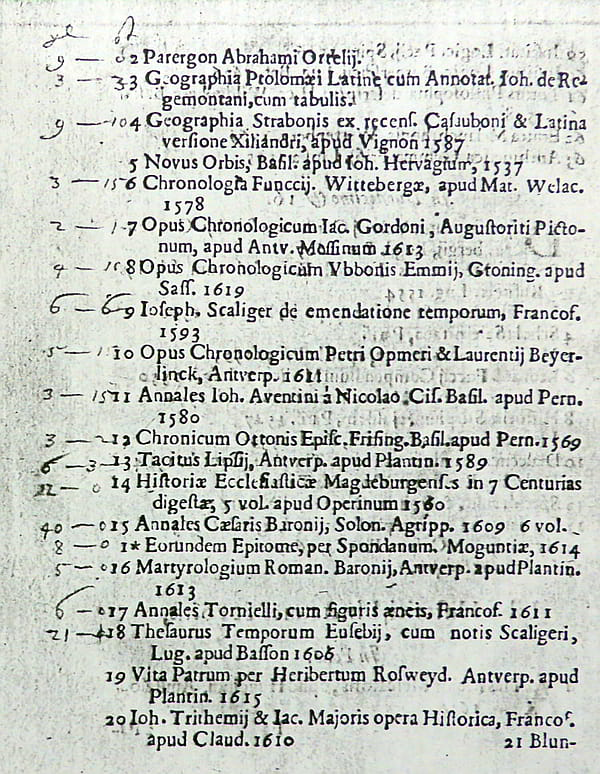 gl st
9 — 0 2 Parergon Abrahami Ortelij.
3 — 3 3 Geographia Ptolomæi Latine cum Annotat. Ioh. de Re-
gemontani, cum tabulis.
9 — 10 4 Geographia Strabonis ex recenſ. Caſauboni & Latina
verſione Xiliandri, apud Vignon 1587
5 Novus Orbis, Baſil. apud Ioh. Hervagium, 1537
3 — 15 6 Chronologia Funccij. Wittebergæ, apud Mat. Welac.
1578
2 — 1 7 Opus Chronologicum Iac. Gordoni, Auguſtoriti Picto-
num, apud Antv. Moſſinum 1613
4 — 15 8 Opus Chronologicum Vbbonis Emmij, Groning. apud
Saſſ. 1619
6 — 6 9 Ioſeph, Scaliger de emendatione temporum, Francof.
1593
5 — 10 Opus Chronologicum Petri Opmeri & Laurentij Beyer-
linck, Antverp. 1611
3 — 15 11 Annales Ioh. Aventini á Nicolao Ciſ. Baſil. apud Pern.
1580
3 — 2 12 Chronicum Ottonis Epiſc. Friſing. Baſil. apud Pern. 1569
6 — 3 — 13 Tacitus Lipſij, Antverp. apud Plantin. 1589
22 — 0 14 Hiſtoriæ Eccleſiaſticæ Magdeburgenſes in 7 Centurias
digeſtæ, 5 vol. apud Operinum 1560
40 — 0 15 Annales Cæſaris Baronij, Solon. Agripp. 1609 6 vol.
8 — 0 1* Eorundem Epitome, per Spondanum. Moguntiæ, 1614
5 — 0 16 Martyrologium Roman. Baronij, Antverp. apud Plantin.
1613
6 — 0 17 Annales Tornielli, cum figuris æneis, Francof. 1611
21 — 18 Theſaurus Temporum Euſebij, cum notis Scaligeri,
Lug. apud Baſſon 1606
19 Vita Patrum per Heribertum Roſweyd. Antverp. apud
Plantin. 1615
20 Ioh. Trithemij & Iac. Majoris opera Hiſtorica, Francof.
apud Claud. 1610 21 Blun-